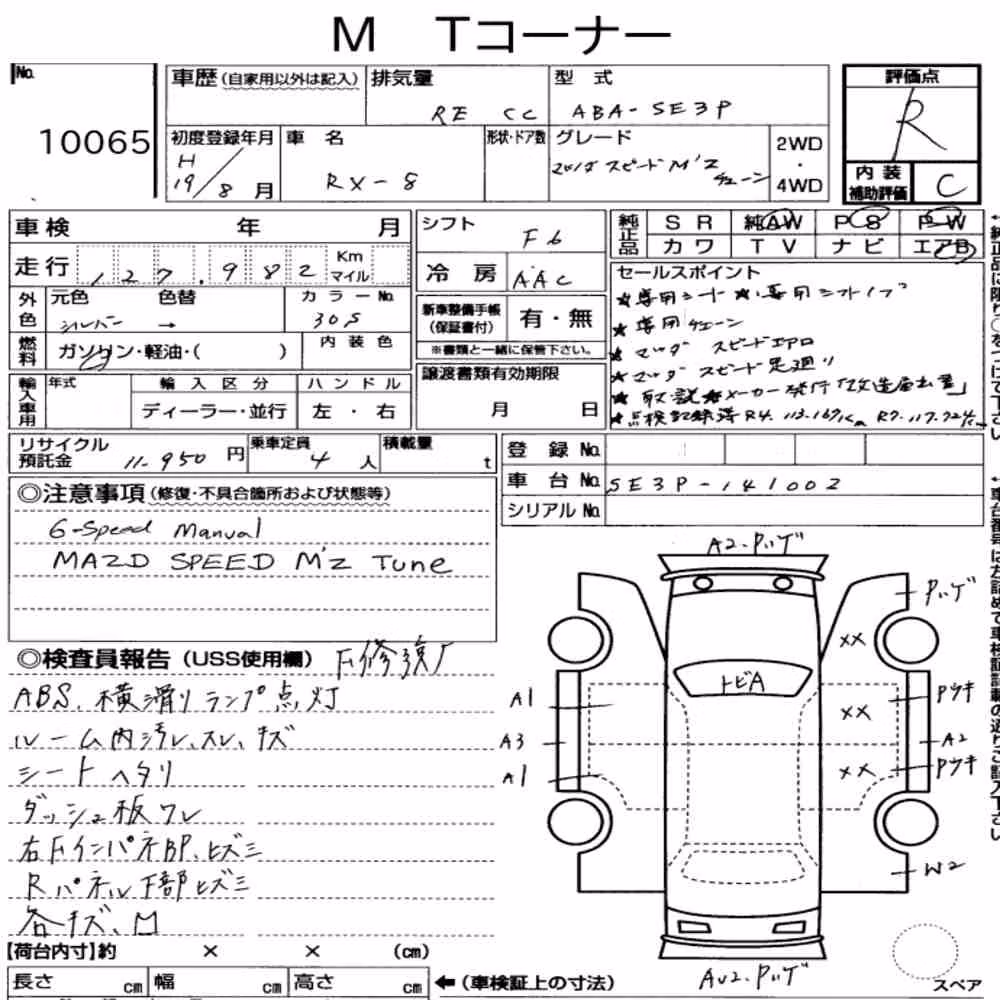 M Tコーナー
No.
10065
車歴(自家用以外は記入) 排気量 RE CC
型式 ABA-SE3P
評価点 R
内装補助評価 C
初度登録年月 H19/8月
車名 RX-8
形状・ドア数
グレード マツダスピード M'Z チューン
2WD・4WD
車検 年 月
走行 127,982 Km マイル
シフト F6
冷房 AAC
純正品 SR 純AW PS PW
カワ TV ナビ エアB
外色 元色 シルバー → 色替 カラーNo 30S
燃料 ガソリン・軽油・( ) 内装色
新車整備手帳(保証書付) 有・無
※書類と一緒に保管下さい。
セールスポイント
★専用シート ★専用シフトノブ
★専用チューン
★マツダ スピードエアロ
★マツダ スピード足廻り
★取説 ★メーカー発行「改造届出書」
★点検記録簿 R4. 113.167km R7. 117.724km
輸入車用 年式 輸入区分 ディーラー・並行 ハンドル 左・右
譲渡書類有効期限 月 日
リサイクル預託金 11.950円
乗車定員 4人
積載量 t
登録No.
車台No. SE3P-141002
シリアルNo.
◎注意事項(修復・不具合箇所および状態等)
6-Speed Manual
MAZD SPEED M'Z Tune
◎検査員報告(USS使用欄) F修復
ABS、横滑りランプ点灯
ルーム内汚レ、スレ、キズ
シートヘタリ
ダッシュ板ワレ
右FインパネBP、ヒズミ
Rパネル下部ヒズミ
各キズ、凹
A2.ハゲ
ハゲ
XX
トビA
A1
XX
Pウキ
A3
A2
A1
XX
Pウキ
W2
AU2.ハゲ
スペア
【荷台内寸】約 × × (cm)
長さ cm 幅 cm 高さ cm
←(車検証上の寸法)